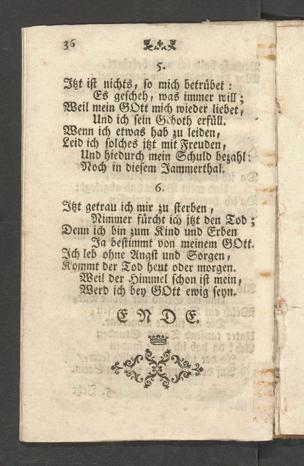 36
5.
Jtzt ist nichts, so mich betrübet:
Es gescheh, was immer will;
Weil mein GOtt mich wieder liebet,
Und ich sein Geboth erfüll.
Wenn ich etwas hab zu leiden,
Leid ich solches itzt mit Freuden,
Und hiedurch mein Schuld bezahl:
Noch in diesem Jammerthal.
6.
Jtzt getrau ich mir zu sterben,
Nimmer fürcht ich itzt den Tod;
Denn ich bin zum Kind und Erben
Ja bestimmt von meinem GOtt.
Ich leb ohne Angst und Sorgen,
Kommt der Tod heut oder morgen.
Weil der Himmel schon ist mein,
Werd ich bey GOtt ewig seyn.
ENDE